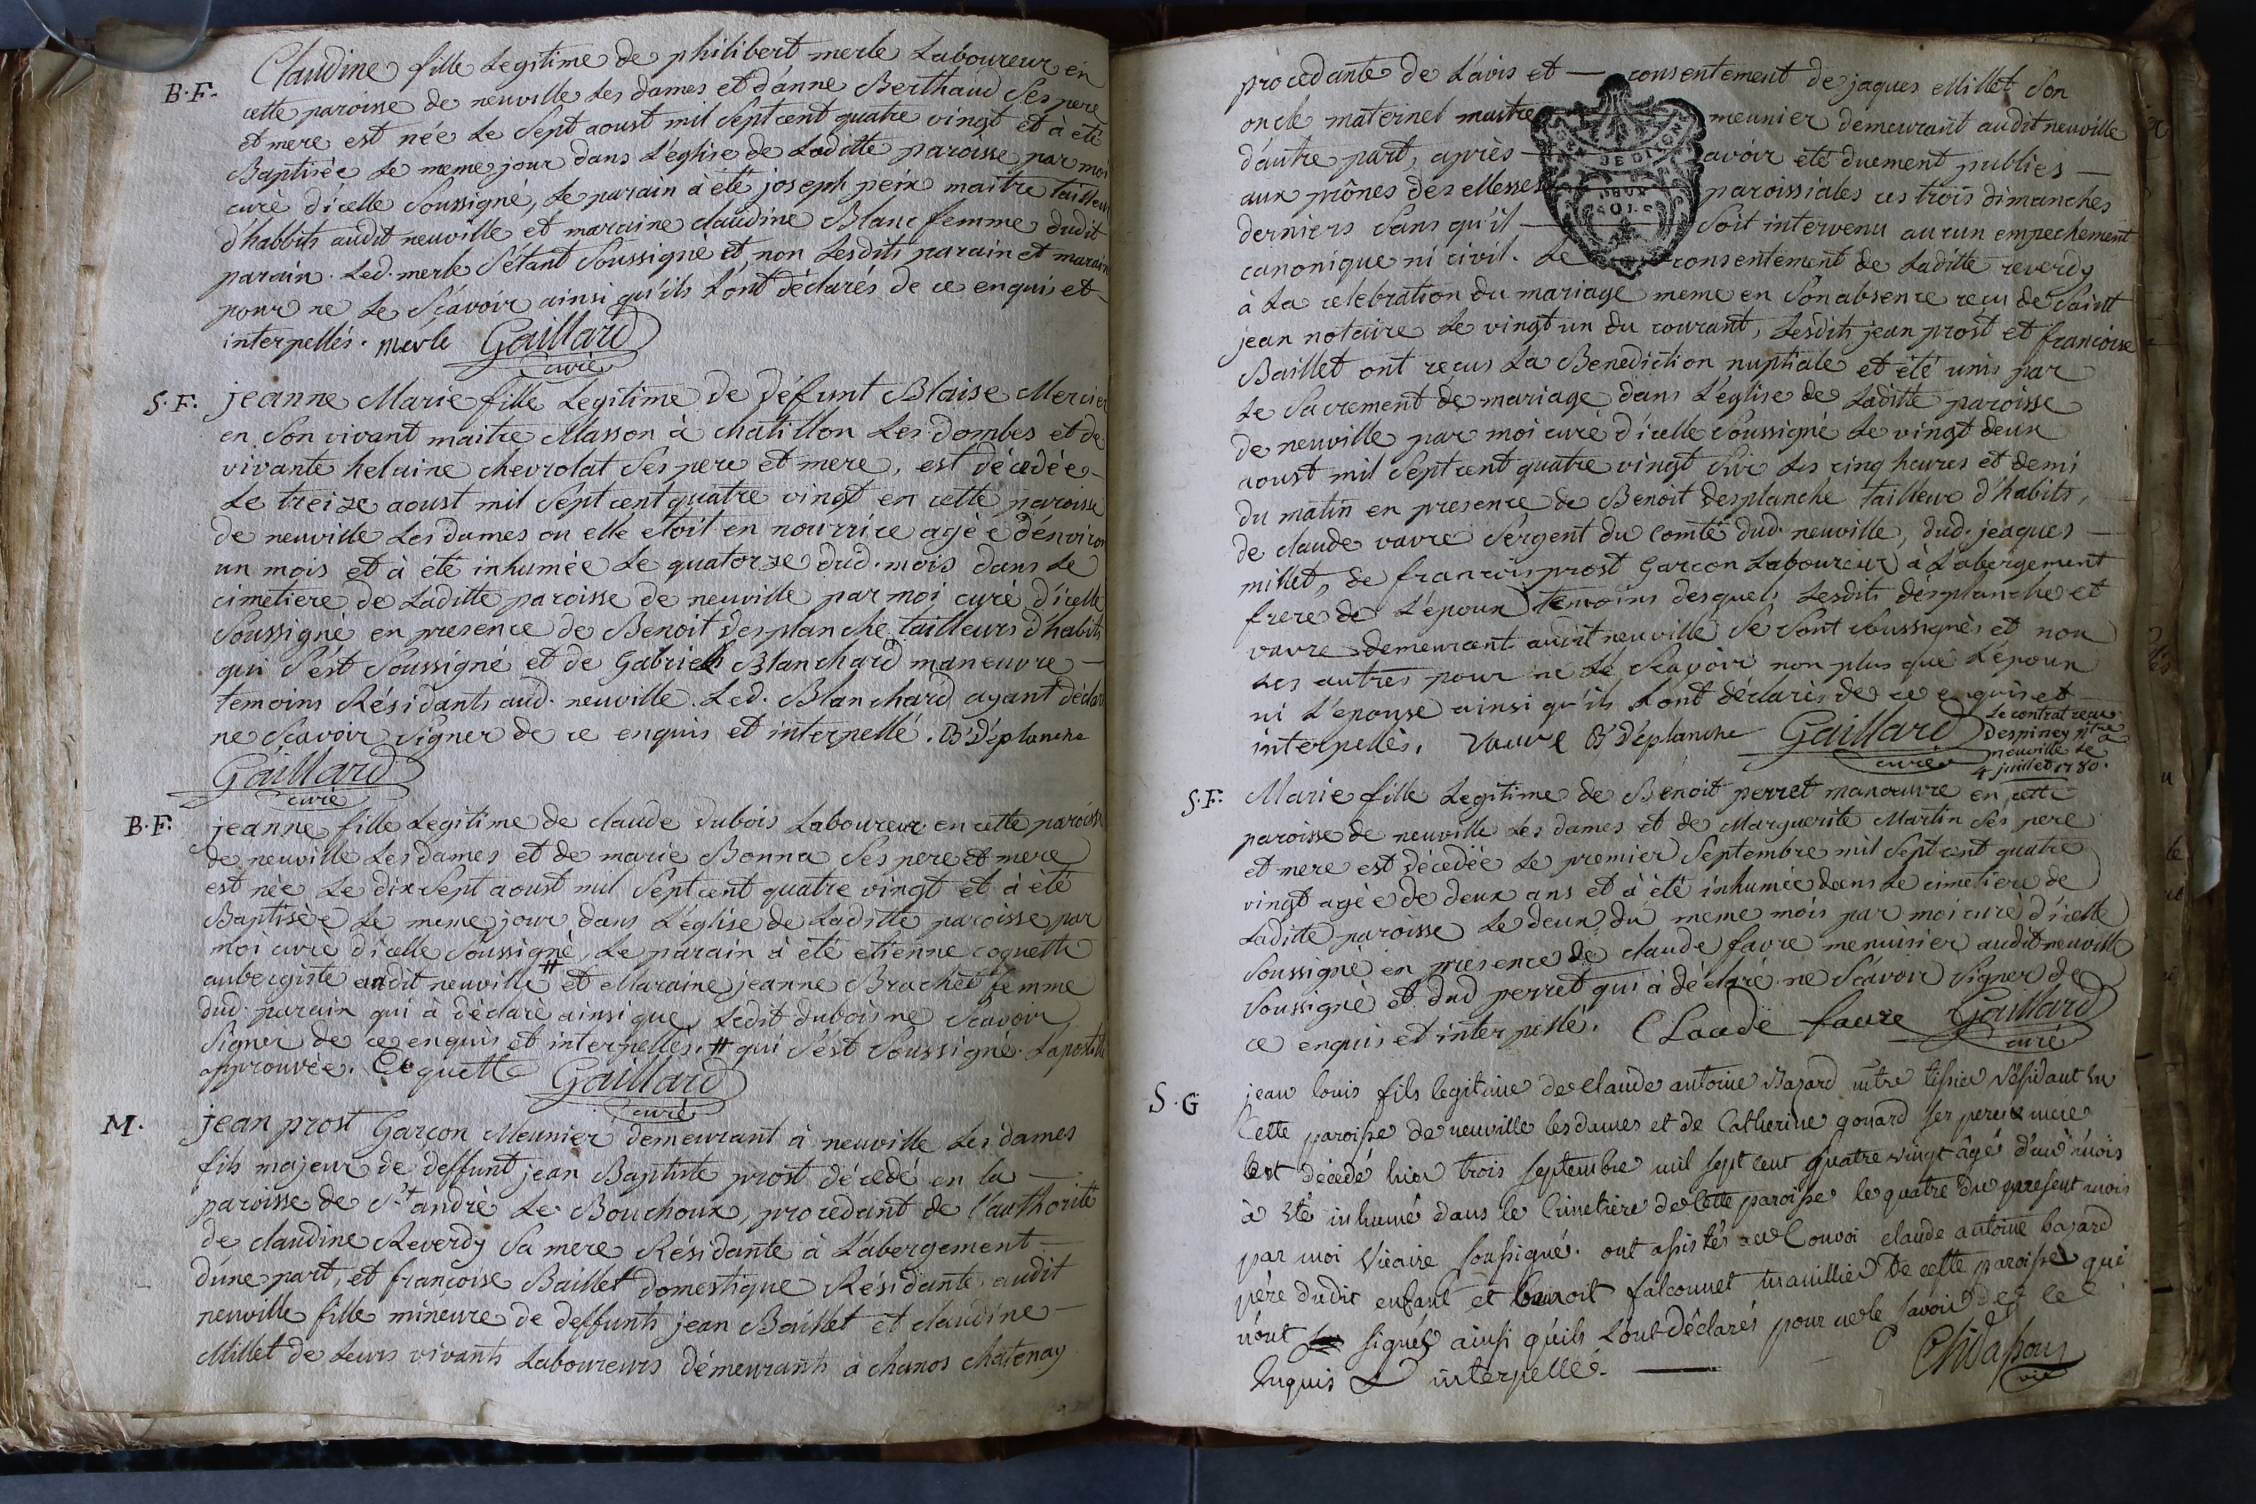 B.F. Claudine fille Legitime de philibert merle Laboureur en
cette paroisse de neuville Les dames et d'anne Berthaud Ses pere
et mere est née Le Sept aoust mil Sept cent quatre vingt et à été
Baptisée Le meme jour dans L'église de Laditte paroisse par moi
curé d'icelle Soussigné, Le parain à été joseph peix maitre tailleur
d'habbits audit neuville et maraine claudine Blanc femme dudit
parain. Led. merle S'étant Soussigné et non Lesdits parain et marain
pour ne Le Sçavoir ainsi qu'ils L'ont déclarés de ce enquis et
interpellés. merle Gaillard
curé
S.F. jeanne Marie fille Legitime de défunt Blaise Mercier
en Son vivant maitre Masson à chatillon Les Dombes et de
vivante helaine chevrolat Ses pere et mere, est décedée
Le treize aoust mil Sept cent quatre vingt en cette paroisse
de neuville Les dames ou elle etoit en nourrice agée d'environ
un mois et à été inhumée Le quatorze dud. mois dans Le
cimetiere de Laditte paroisse de neuville par moi curé d'icelle
Soussigné en presence de Benoit desplanche tailleurs d'habits
qui S'est Soussigné et de Gabriel Blanchard maneuvre
temoins Résidants aud. neuville. Led. Blanchard ayant déclaré
ne Scavoir Signer de ce enquis et interpellé. B Déplanche
Gaillard
curé
B.F. jeanne fille Legitime de claude dubois Laboureur en cette paroisse
de neuville Les dames et de marie Bonna Ses pere et mere
est née Le dix Sept aoust mil Sept cent quatre vingt et à été
Baptisée Le meme jour dans L'église de Laditte paroisse par
moi curé d'icelle Soussigné, Le parain à été etienne coquette
aubergiste audit neuville # et Maraine jeanne Brachet femme
dud. parain qui à déclaré ainsi que Ledit dubois ne Scavoir
Signer de ce enquis et interpellés. # qui S'est Soussigné. Lapostille
approuvée. Coquette Gaillard
curé
M. jean prost Garçon Meunier demeurant à neuville Les dames
fils majeur de deffunt jean Baptiste prost décedé en la
paroisse de St. andré Le Bouchoux, procedant de l'authorité
de claudine Reverdy Sa mere Résidante à L'abergement
d'une part, et françoise Baillet domestique Résidante audit
neuville fille mineure de deffunts jean Baillet et claudine
Millet de Leurs vivants Laboureurs démeurants à chanos chatenay
procedante de L'avis et consentement de jaques Millet Son
oncle maternel maitre meunier demeurant audit neuville
d'autre part, après avoir été duement publiés
aux prônes des Messes paroissiales ces trois dimanches
derniers Sans qu'il Soit intervenu aucun empechement
canonique ni civil. Le consentement de Laditte reverdy
à La celebration du mariage meme en Son absence reçu de Saint
jean notaire Le vingt un du courant, Lesdits jean prost et francoise
Baillet ont reçus La Benediction nuptiale et été unis par
Le Sacrement de mariage dans L'église de Laditte paroisse
de neuville par moi curé d'icelle Soussigné Le vingt deux
aoust mil Sept cent quatre vingt Sur Les cinq heures et demi
du matin en presence de Benoit desplanche tailleur d'habits,
de claude vavre Sergent du Comté dud. neuville, dud. jeaques
millet, de francois prost Garcon Laboureur à L'abergement
frere de L'époux temoins desquels Lesdits desplanche et
vavre demeurant audit neuville Se Sont Soussignés et non
Les autres pour ne Le Scavoir non plus que L'époux
ni L'épouse ainsi qu'ils L'ont déclarés de ce enquis et
interpellés. Vavre B Déplanche Gaillard
curé
Le contrat reçu
despiney ntre à
neuville Le
4 juillet 1780.
S.F. Marie fille Legitime de Benoit perret manœuvre en cette
paroisse de neuville Les dames et de Marguerite Martin Ses pere
et mere est décedée Le premier Septembre mil Sept cent quatre
vingt agée de deux ans et à été inhumée dans Le cimetiere de
Laditte paroisse Le deux du meme mois par moi curé d'icelle
Soussigné en presence de claude favre menuisier audit neuville
Soussigné et dud perret qui à déclaré ne Scavoir Signer de
ce enquis et interpellé. Claude favre Gaillard
curé
S.G jean louis fils legitime de Claude antoine Bazard mtre tissier Résidant en
Cette paroisse de neuville les dames et de Catherine gonard ses pere et mere
est décédé hier trois septembre mil sept cent quatre vingt âgé d'un mois
à été inhumé dans le Cimetiere de Cette paroisse le quatre du present mois
par moi Vicaire soussigné. ont assistés au Convoi claude antoine bazard
père dudit enfant et benoit falconnet mauillier de cette paroisse qui
n'ont signés ainsi qu'ils L'ont déclarés pour ne le savoir de ce
Enquis & interpellé.
vic